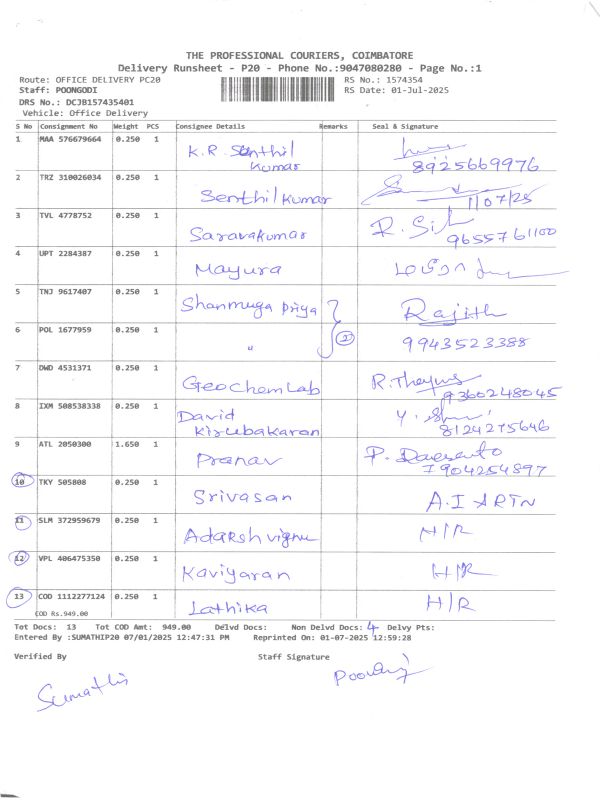 THE PROFESSIONAL COURIERS, COIMBATORE
Delivery Runsheet - P20 - Phone No.:9047080280 - Page No.:1
Route: OFFICE DELIVERY PC20 RS No.: 1574354
Staff: POONGODI RS Date: 01-Jul-2025
DRS No.: DCJB157435401
Vehicle: Office Delivery
S No Consignment No Weight PCS Consignee Details Remarks Seal & Signature
1 MAA 576679664 0.250 1 K.R. Senthil Kumar 8925669976
2 TRZ 310026034 0.250 1 Senthil Kumar 1/07/25
3 TVL 4778752 0.250 1 Saravakumar R. 9655761100
4 UPT 2284387 0.250 1 Mayura
5 TNJ 9617407 0.250 1 Shanmuga Priya Rajith
6 POL 1677959 0.250 1 " 2 9943523388
7 DWD 4531371 0.250 1 Geochem Lab R. 9360248045
8 IXM 508538338 0.250 1 David Kirubakaran 8124275646
9 ATL 2050300 1.650 1 Pranav P. 7904254897
10 TKY 505808 0.250 1 Srivasan
11 SLM 372959679 0.250 1 Adarsh H/R
12 VPL 406475350 0.250 1 Kaviyaran H/R
13 COD 1112277124 0.250 1 Lathika H/R
COD Rs.949.00
Tot Docs: 13 Tot COD Amt: 949.00 Delvd Docs: Non Delvd Docs: 4 Delvy Pts:
Entered By :SUMATHIP20 07/01/2025 12:47:31 PM Reprinted On: 01-07-2025 12:59:28
Verified By Staff Signature
Sumathi